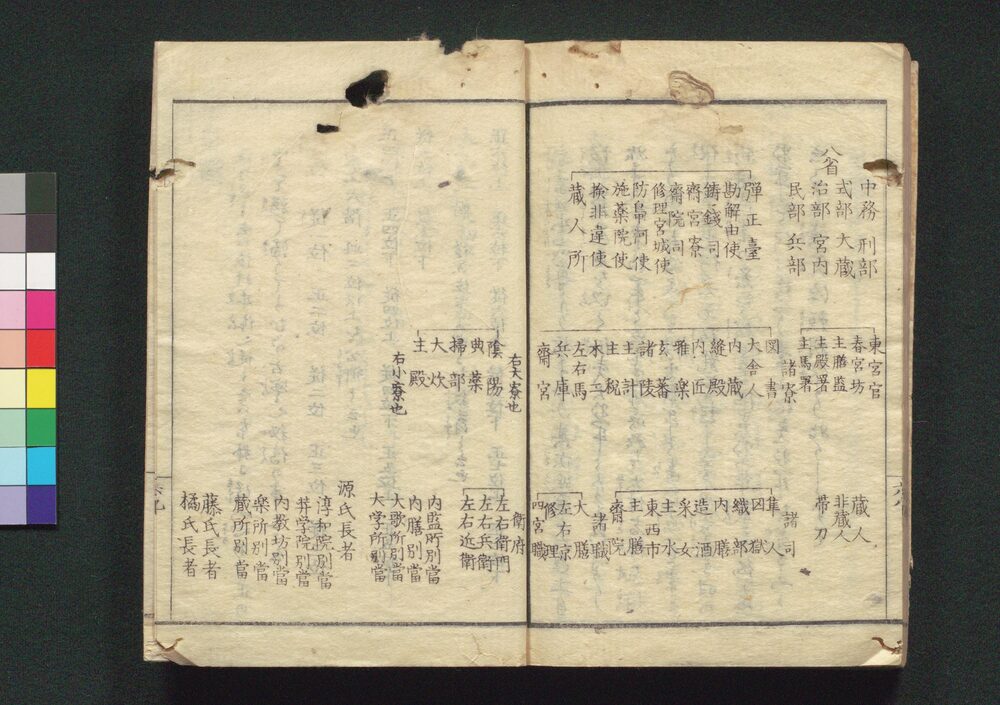 八省
中務 刑部
式部 大蔵
治部 宮内
民部 兵部
弾正臺
勘解由使
鋳錢司
齋宮寮
齋院司
修理宮城使
防鴨河使
施薬院使
検非違使
蔵人所
東宮官
春宮坊
主膳監
主殿署
主馬署
諸寮
圖書
大舎人
内蔵
縫殿
内匠
雅楽
玄蕃
諸陵
主計
主税
木工
左右馬
兵庫
齋宮
右大寮也
陰陽
典薬
掃部
大炊
主殿
右小寮也
蔵人
非蔵人
帯刀
諸司
隼人
囚獄
織部
内膳
造酒
采女
主水
東西市
主膳
齋院
諸職
大膳
左右京
修理
四宮職
衛府
左右衛門
左右兵衛
左右近衛
内監所別當
内膳別當
大歌所別當
大学所別當
源氏長者
淳和院別當
弉学院別當
内教坊別當
楽所別當
蔵所別當
藤氏長者
橘氏長者